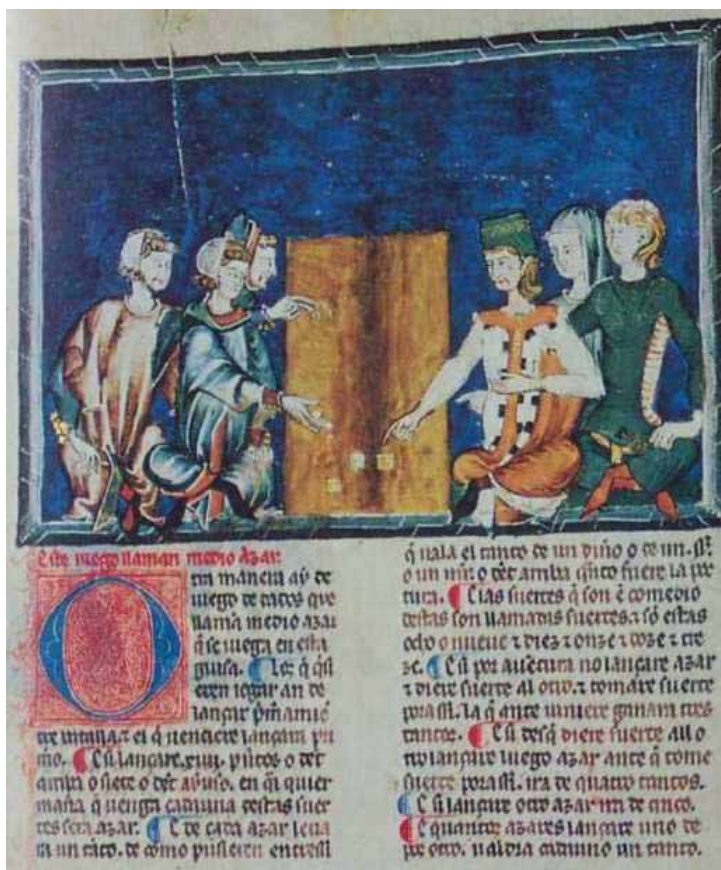 Este iuego llaman medio azar.
Otra manera ay de
iuego de dados que
llamã medio azar
q̃ se iuega en esta
guisa. ¶ Los q̃ q̃si
eren iogar an de
lançar p̃mamiẽ
tre batalla. ⁊ el q̃ uenciere lançara p̃i
mo. ¶ E si lançare .xiiij. pũtos o dẽt
arriba o siete o dẽt ayuso. en q̃l quier
maña q̃ uenga cadauna destas suer
tes sera azar. ¶ E de cada azar leua
ra un tãto. de como pusieren entressi
q̃ uala el tanto de un diño o de un .ss̃.
o un mr̃. o dẽt arriba quãto fuere la pos
tura. ¶ E las suertes q̃ son ẽ comedio
destas son llamadas suertes. ⁊ sõ estas
ocho o nueue ⁊ diez ⁊ onze ⁊ doze ⁊ tre
ze. ¶ E si por auẽtura no lançare azar
⁊ diere suerte al otro. ⁊ tomare suerte
pora ssi. la q̃ ante uiniere ganara tres
tantos. ¶ E si desq̃ diere suerte all o
tro lançare luego azar ante q̃ tome
suerte pora ssi. ira de quatro tantos.
¶ E si lançare otro azar ira de cinco.
¶ E quantos azares lançare uno de
pos otro. ualdra cadauno un tanto.